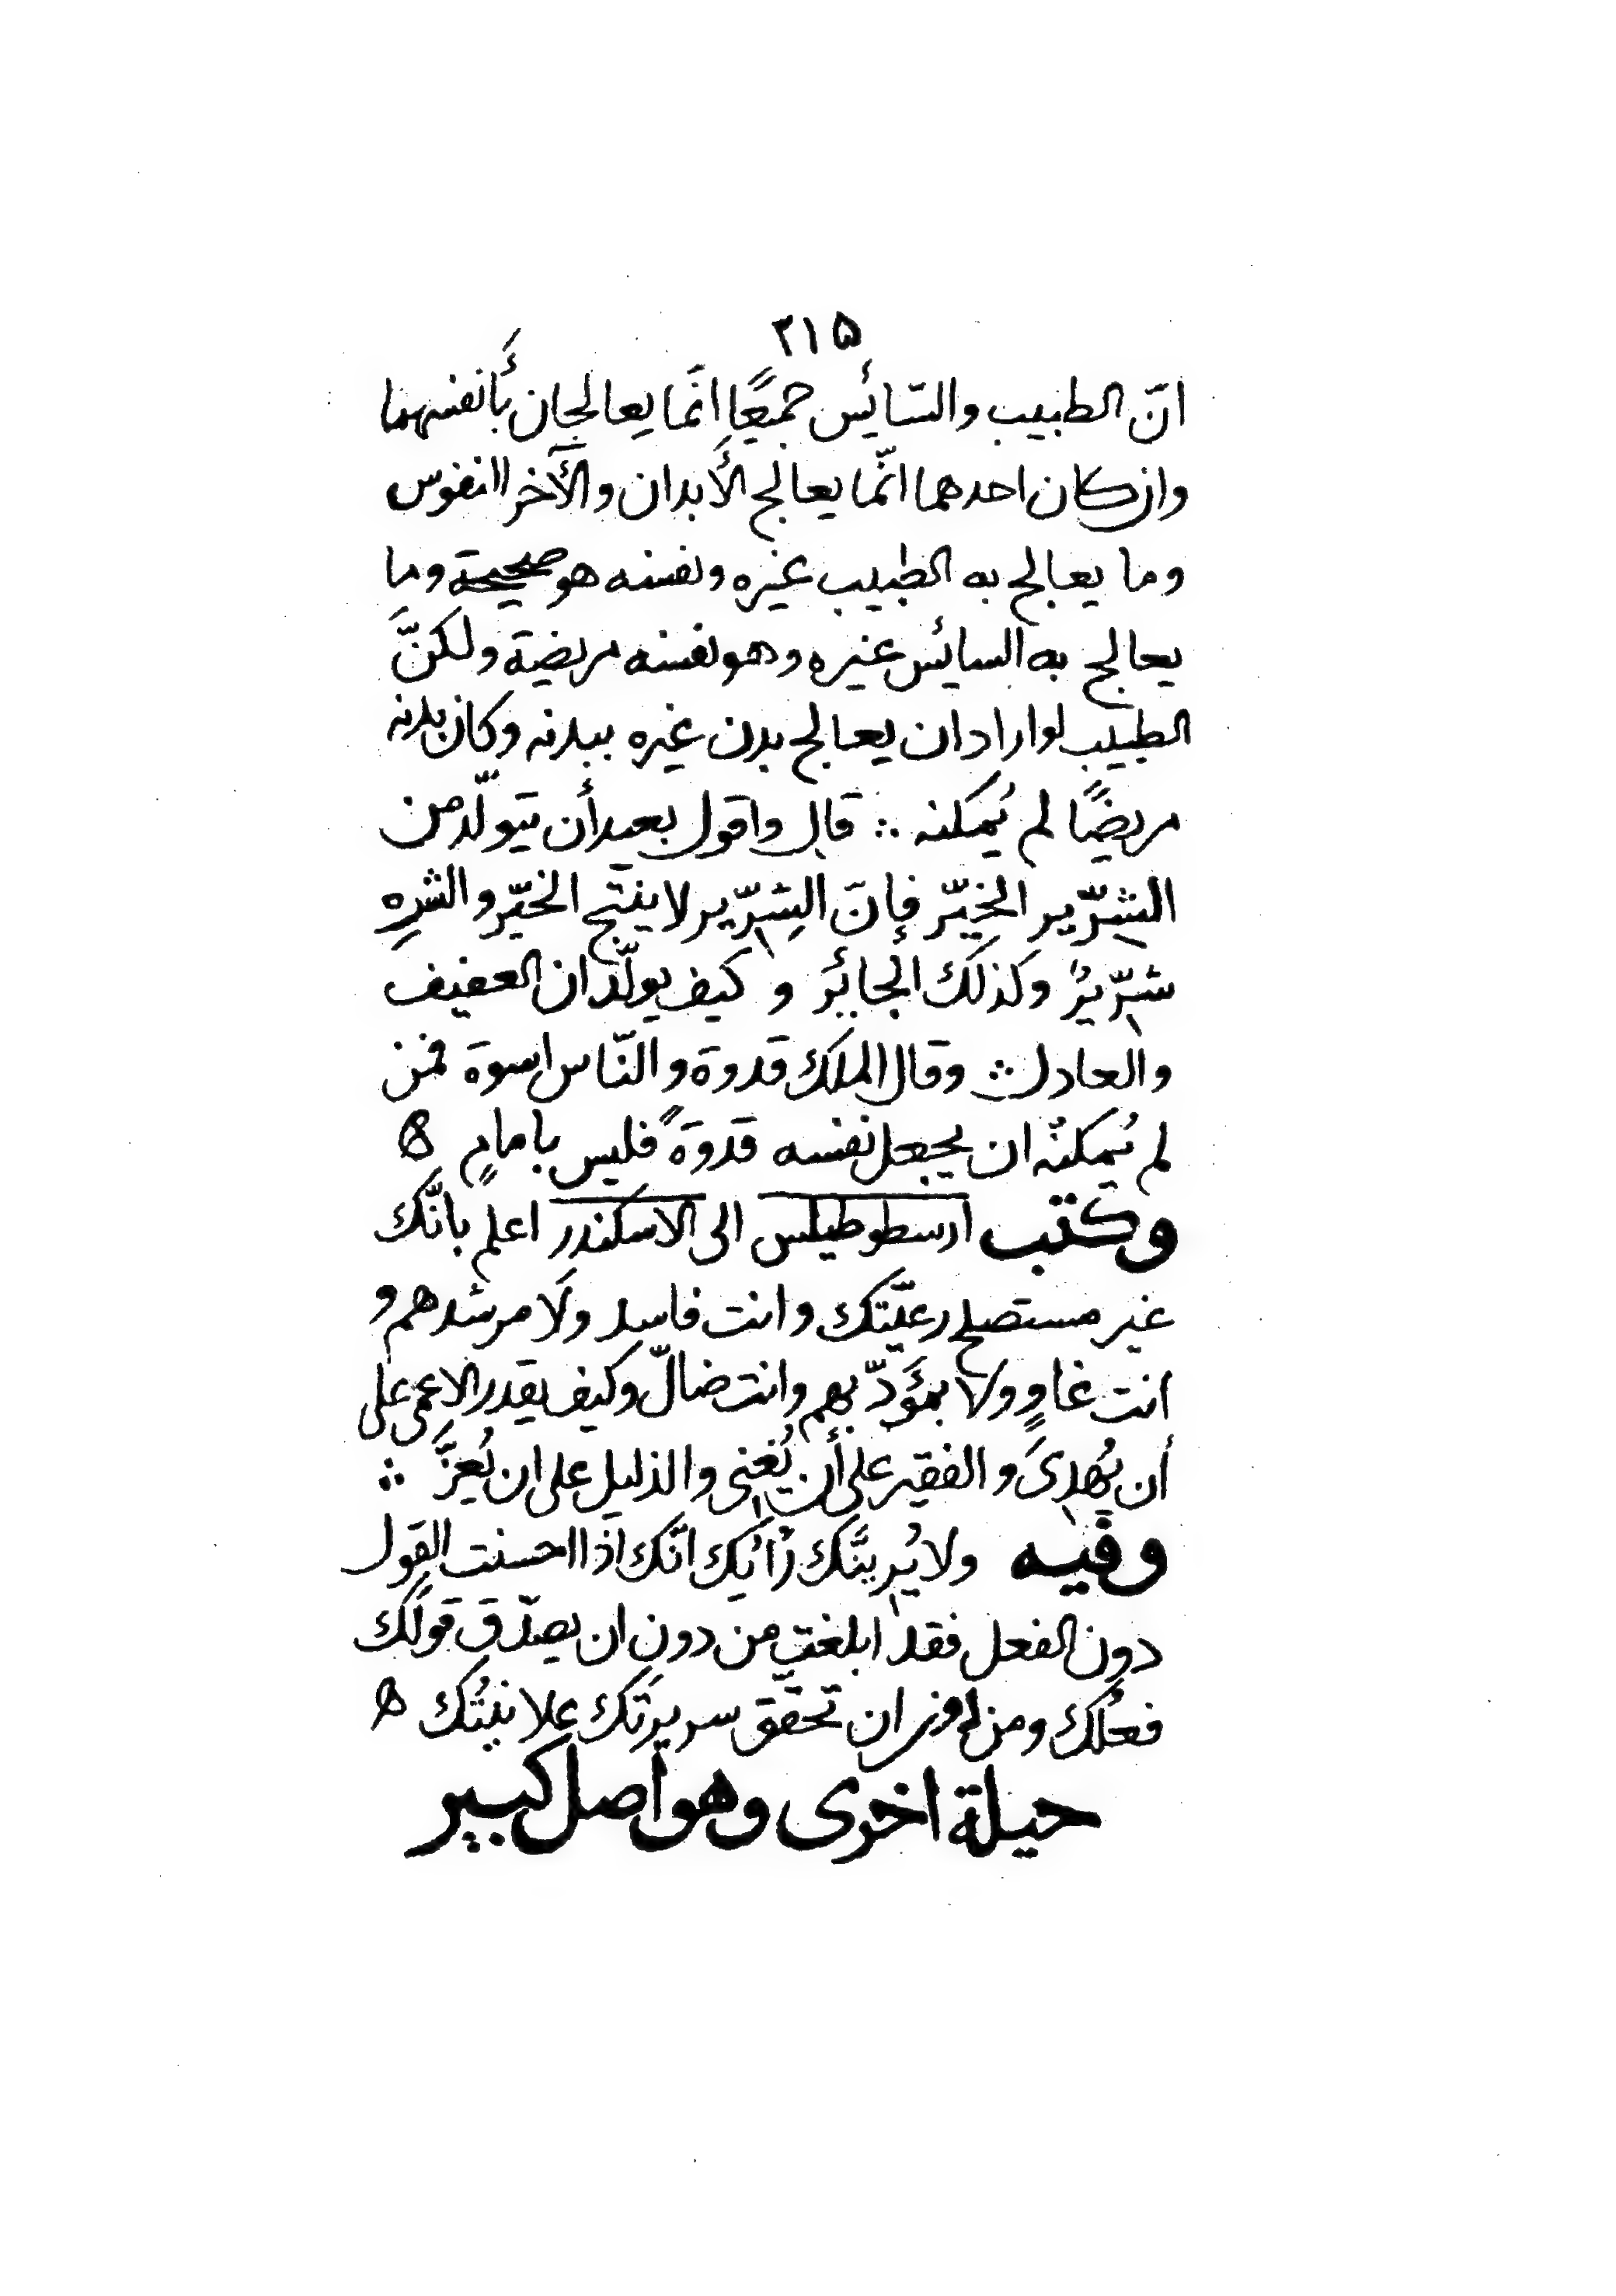 ٢١٥
انّ الطبيب والسّائس جميعًا إنّما يعالجان بأنفسهما
وان كان احدهما انّما يعالج الأبدان والآخر الانفوس
وما يعالج به الطبيب غيره ونفسه هو صحيحة وما
يعالج به السائس غيره وهو نفسه مريضة ولكنّ
الطبيب لو اراد ان يعالج بدن غيره ببدنه وكان بدنه
مريضًا لم يُمكنه ∴ قال واقول بعيد أن يتولّد من
الشرّير الخيّر فإنّ الشِرّير لا ينتج الخيّر والشره
شرّيرٌ وكذلك الجائر و كيف يولّد ان العفيف
والعادل ∴ وقال الملك قدوة والنّاس اسوة فمن
لم يُمكنهُ ان يجعل نفسه قدوةً فليس بامامٍ ه
وكتب ارسطوطيلس الى الاسكندر اعلم بانّك
غير مستصلح رعيّتك وانت فاسد ولا مرشدهم و
انت غاوٍ ولا بمؤدّبهم وانت ضالّ وكيف يقدر الاعمى على
أن يُهدِىَ والفقير على أن يُغنِى والذليل على ان يُعِزَّ ∴
وفيه ولا يُرِيبَنَّك رَأيُك انّك اذا احسنت القول
دون الفعل فقد ابلغت من دون ان يصدّق قولَك
فعلُك ومن دون ان تحقّق سريرتَك علانيتُك ه
حيلة اخرى وهو اصل كبير